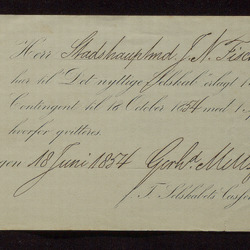 Herr Stadshauptmd. J. N. Fisc
har til "Det nyttige Selskab" erlagt
Contingent til 16 October 1854 med 1
hvorfor qvitteres.
gen 18 Juni 1854
T. Selskabets Casfe